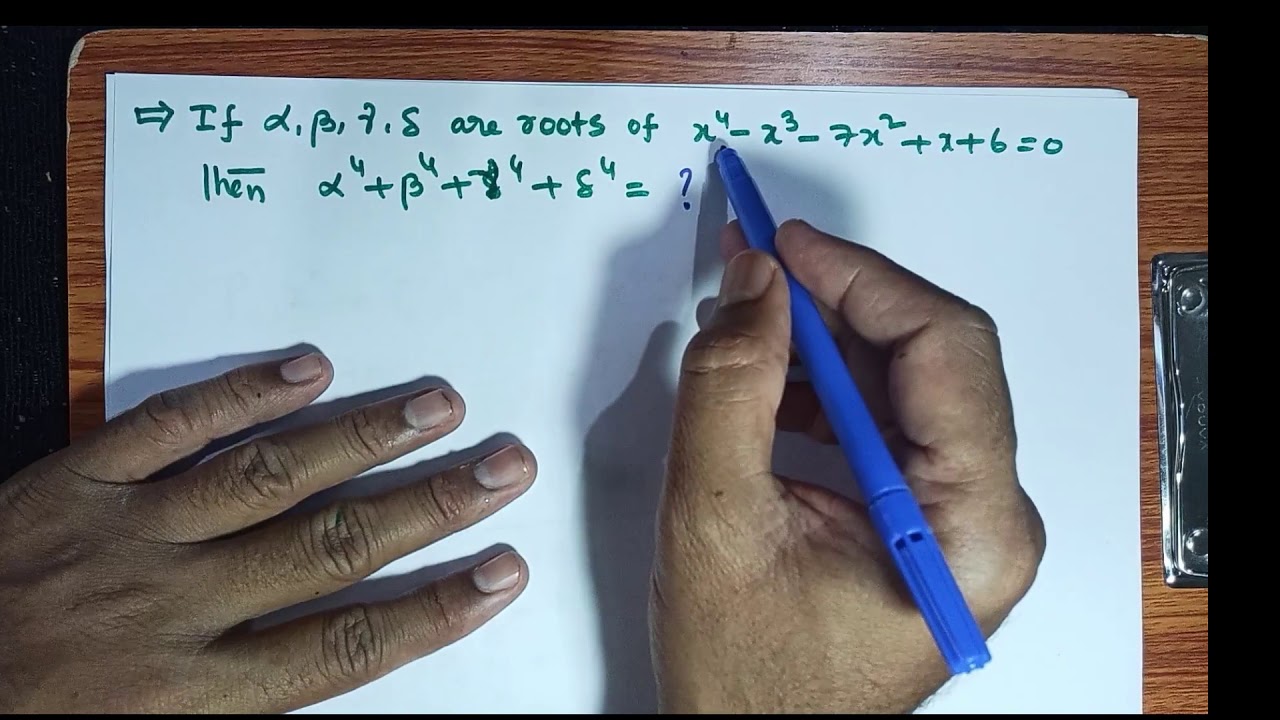 ⇒ If α, β, γ, δ are roots of x⁴ - x³ - 7x² + x + 6 = 0
Then α⁴ + β⁴ + γ⁴ + δ⁴ = ?